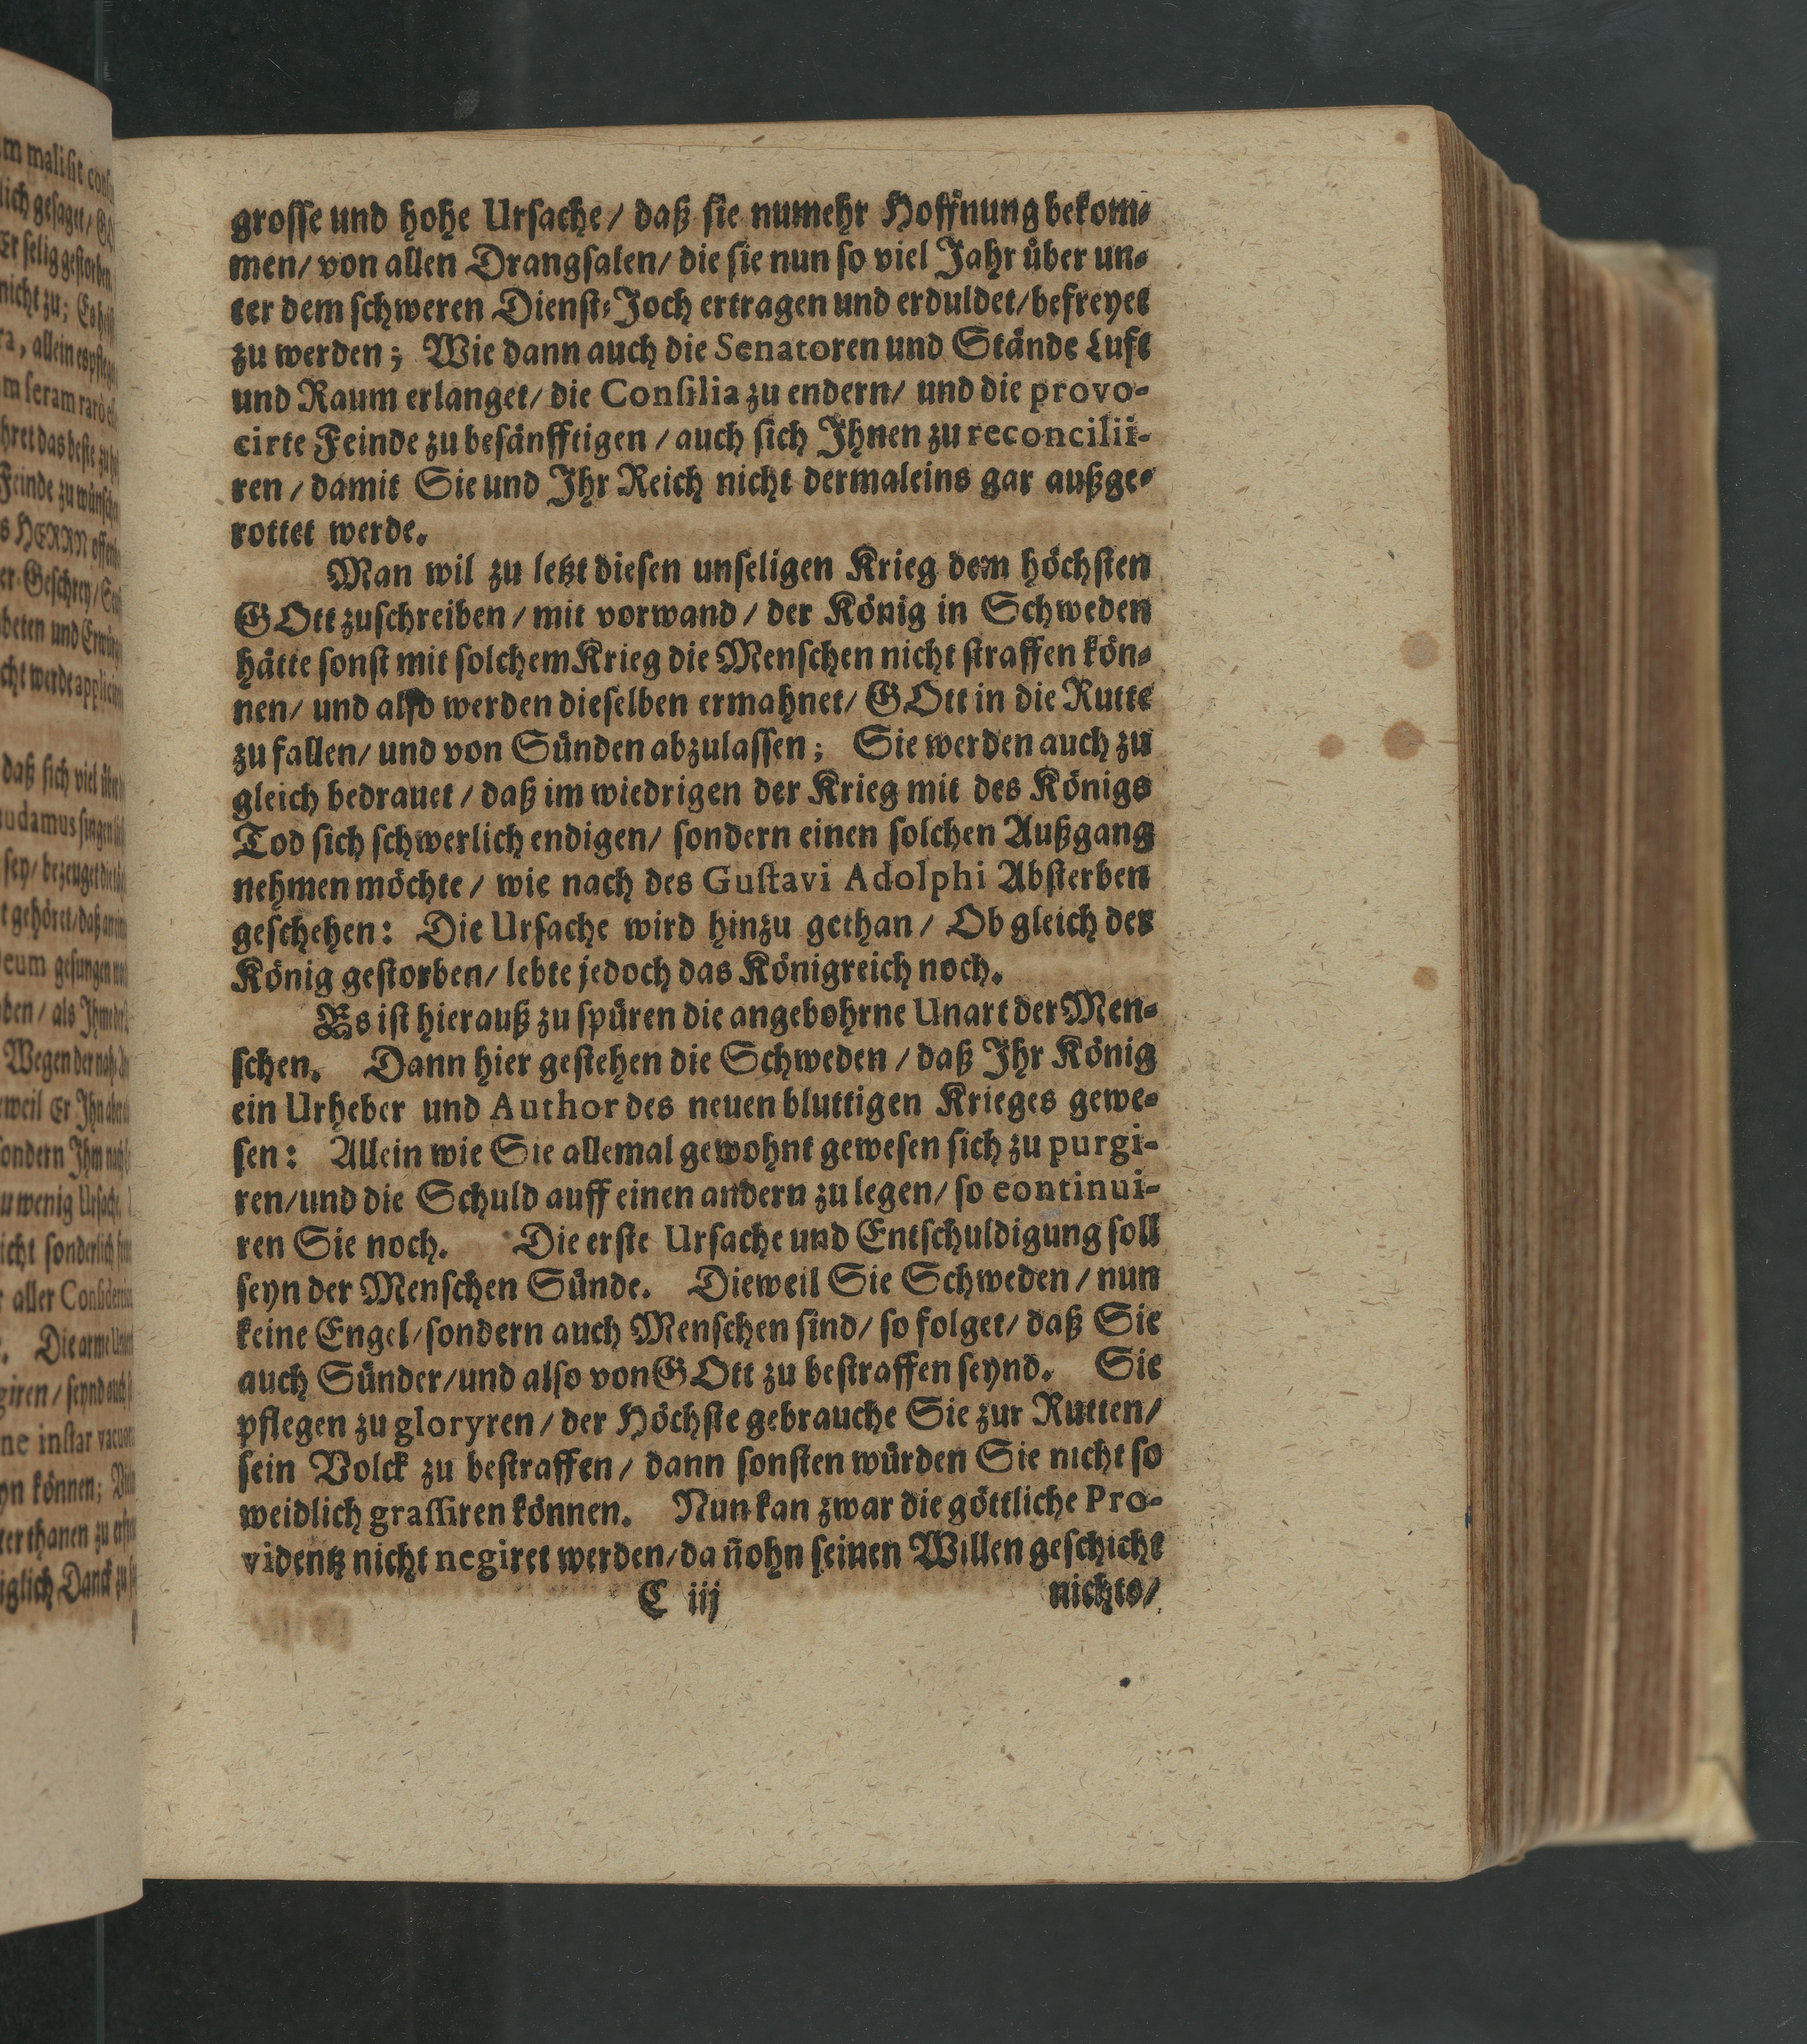 grosse und hohe Ursache/ daß sie numehr Hoffnung bekom-
men/ von allen Drangsalen/ die sie nun so viel Jahr über un-
ter dem schweren Dienst-Joch ertragen und erduldet/ befreyet
zu werden; Wie dann auch die Senatoren und Stände Luft
und Raum erlanget/ die Consilia zu endern/ und die provo-
cirte Feinde zu besänfftigen / auch sich Ihnen zu reconcilii-
ren / damit Sie und Ihr Reich nicht dermaleins gar außge-
rottet werde.
Man wil zu letzt diesen unseligen Krieg dem höchsten
GOtt zuschreiben / mit vorwand / der König in Schweden
hätte sonst mit solchem Krieg die Menschen nicht straffen kön-
nen/ und also werden dieselben ermahnet/ GOtt in die Rutte
zu fallen/ und von Sünden abzulassen; Sie werden auch zu
gleich bedrauet / daß im wiedrigen der Krieg mit des Königs
Tod sich schwerlich endigen/ sondern einen solchen Außgang
nehmen möchte / wie nach des Gustavi Adolphi Absterben
geschehen: Die Ursache wird hinzu gethan / Ob gleich der
König gestorben/ lebte jedoch das Königreich noch.
Es ist hierauß zu spüren die angebohrne Unart der Men-
schen. Dann hier gestehen die Schweden / daß Ihr König
ein Urheber und Author des neuen bluttigen Krieges gewe-
sen: Allein wie Sie allemal gewohnt gewesen sich zu purgi-
ren/und die Schuld auff einen andern zu legen/ so continui-
ren Sie noch. Die erste Ursache und Entschuldigung soll
seyn der Menschen Sünde. Dieweil Sie Schweden / nun
keine Engel/sondern auch Menschen sind/ so folget/ daß Sie
auch Sünder/und also von GOtt zu bestraffen seynd. Sie
pflegen zu gloryren / der Höchste gebrauche Sie zur Rutten/
sein Volck zu bestraffen / dann sonsten würden Sie nicht so
weidlich grassiren können. Nun kan zwar die göttliche Pro-
videntz nicht negiret werden/da ñohn seinen Willen geschicht
C iij nichts/